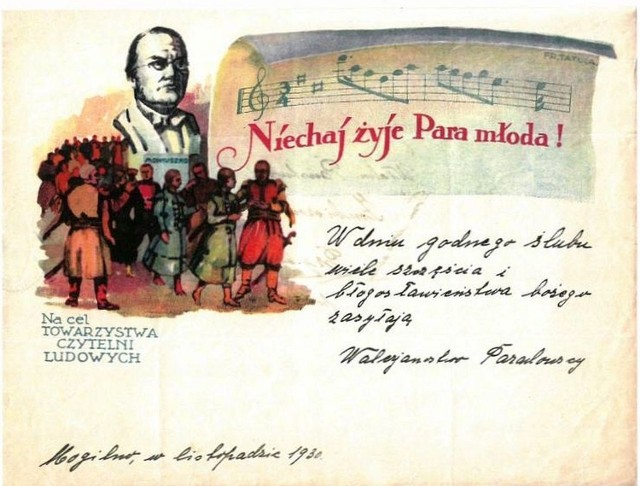 MONIUSZKO
Niechaj żyje Para młoda!
W dniu godnego ślubu
wiele szczęścia i
błogosławieństwa bożego
zasyłają
Paradowscy
Na cel
TOWARZYSTWA
CZYTELNI
LUDOWYCH
Mogilno, w listopadzie 1930.